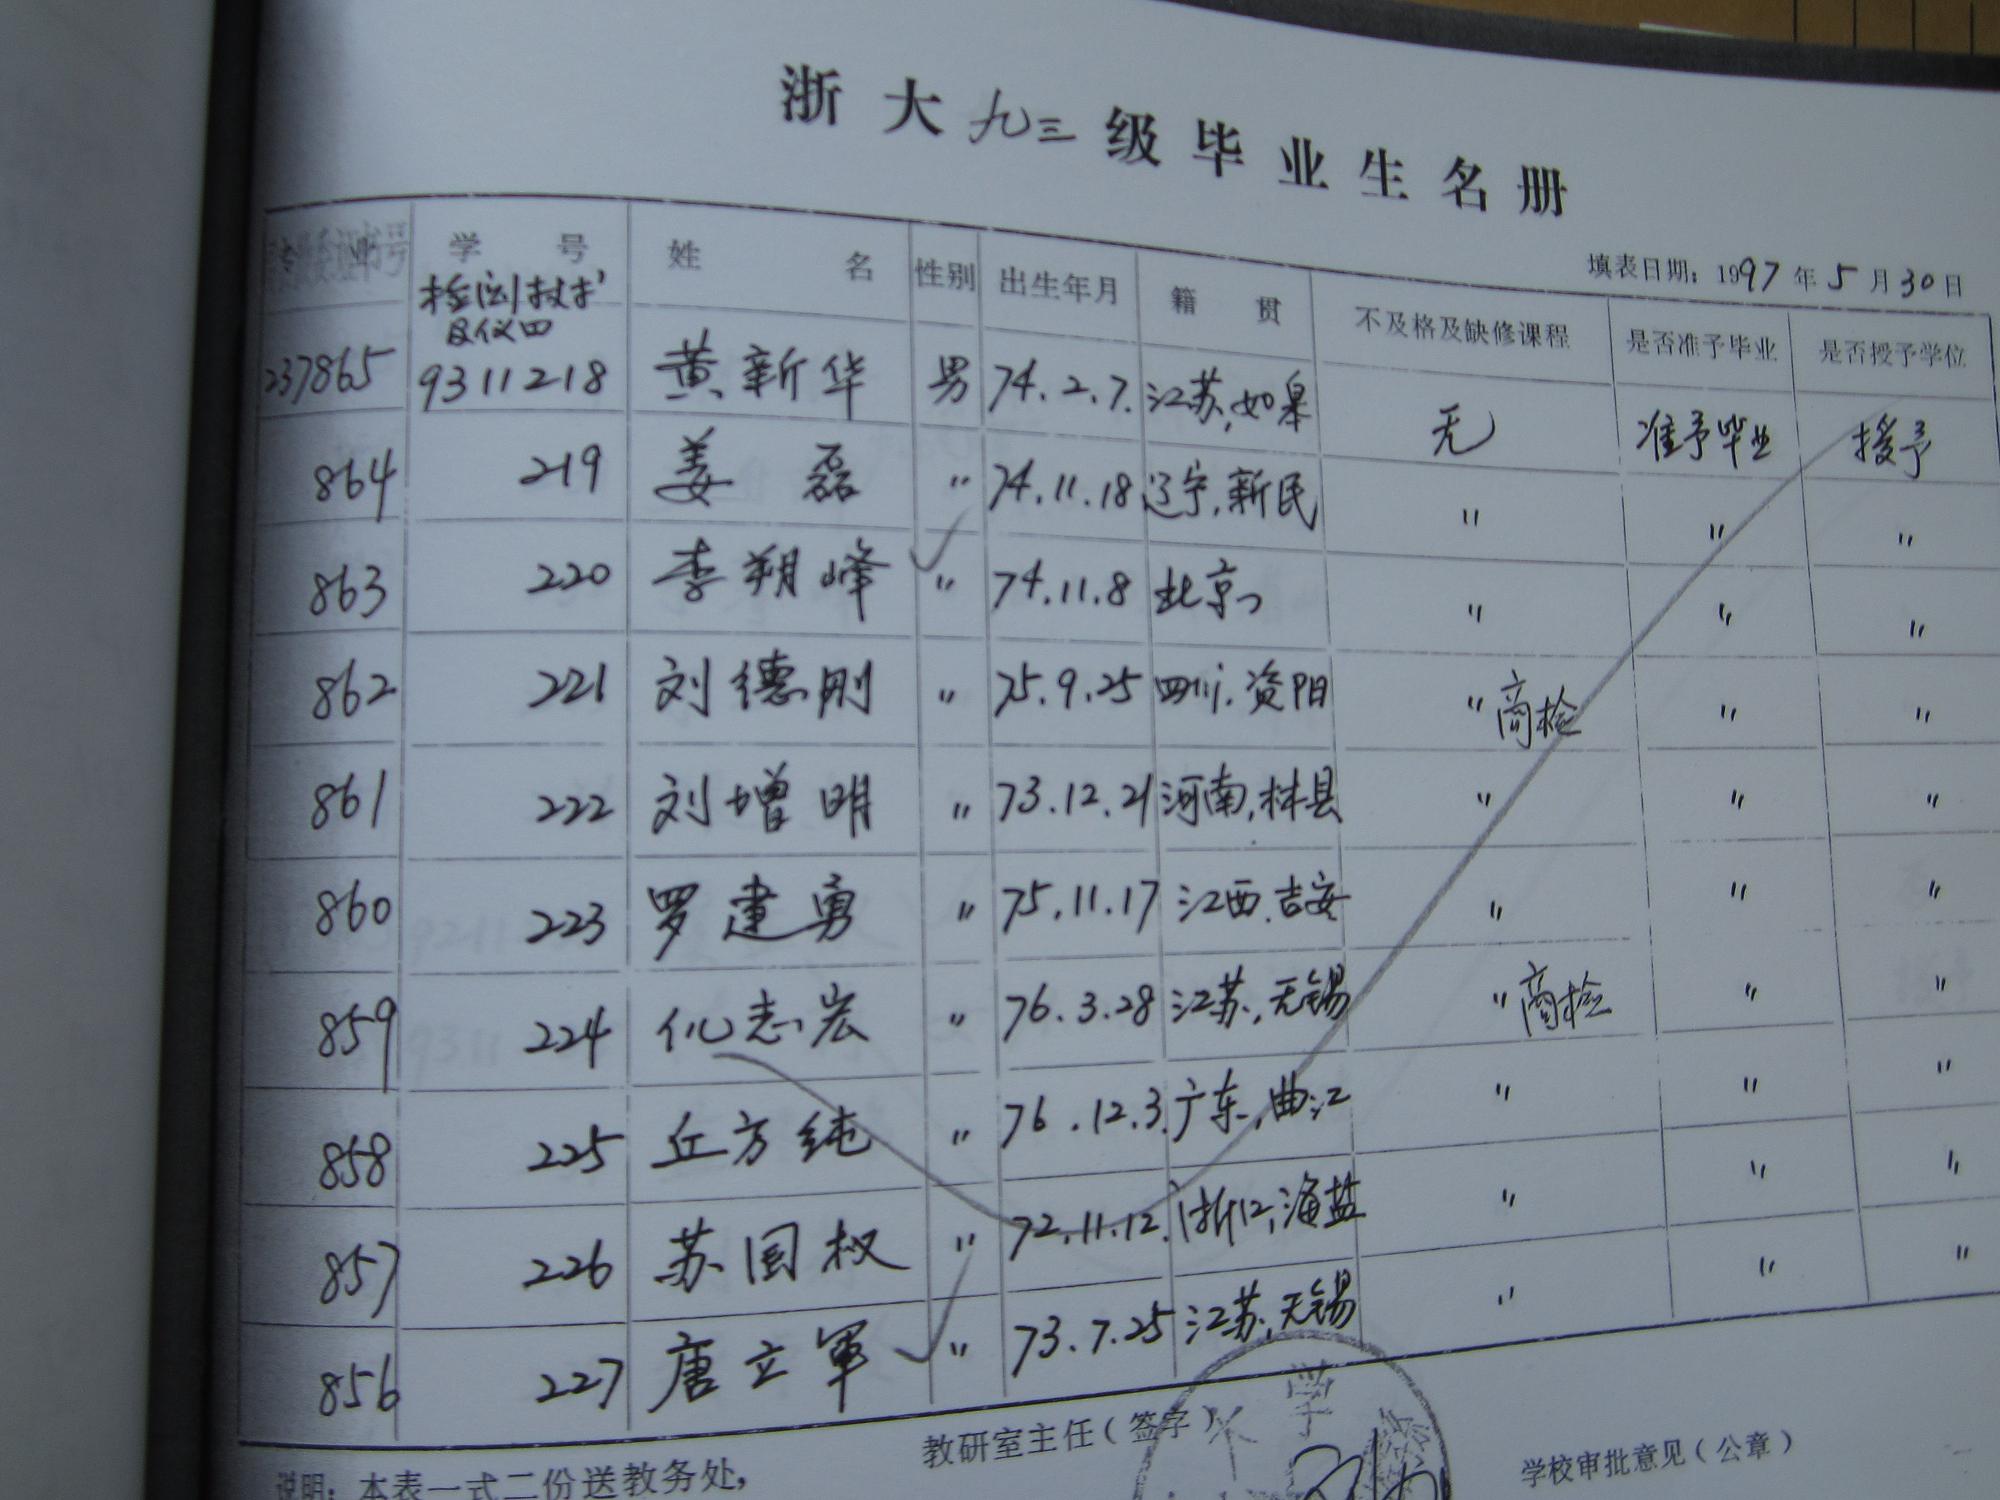 浙大九三级毕业生名册
填表日期：1997年5月30日
证书号 学号 姓名 性别 出生年月 籍贯 不及格及缺修课程 是否准予毕业 是否授予学位
检测技术
及仪四
237865 9311218 黄新华 男 74.2.7. 江苏,如皋 无 准予毕业 授予
864 219 姜磊 〃 74.11.18 辽宁,新民 〃 〃 〃
863 220 李朔峰 〃 74.11.8 北京 〃 〃 〃
862 221 刘德刚 〃 75.9.25 四川.资阳 〃 商检 〃 〃
861 222 刘增明 〃 73.12.21 河南,林县 〃 〃 〃
860 223 罗建勇 〃 75.11.17 江西.吉安 〃 〃 〃
859 224 仉志宏 〃 76.3.28 江苏,无锡 〃 商检 〃 〃
858 225 丘方纯 〃 76.12.3. 广东,曲江 〃 〃 〃
857 226 苏国权 〃 72.11.12. 浙江,海盐 〃 〃 〃
856 227 唐立軍 〃 73.7.25 江苏,无锡 〃 〃 〃
教研室主任(签字) 学校审批意见(公章)
说明：本表一式二份送教务处,